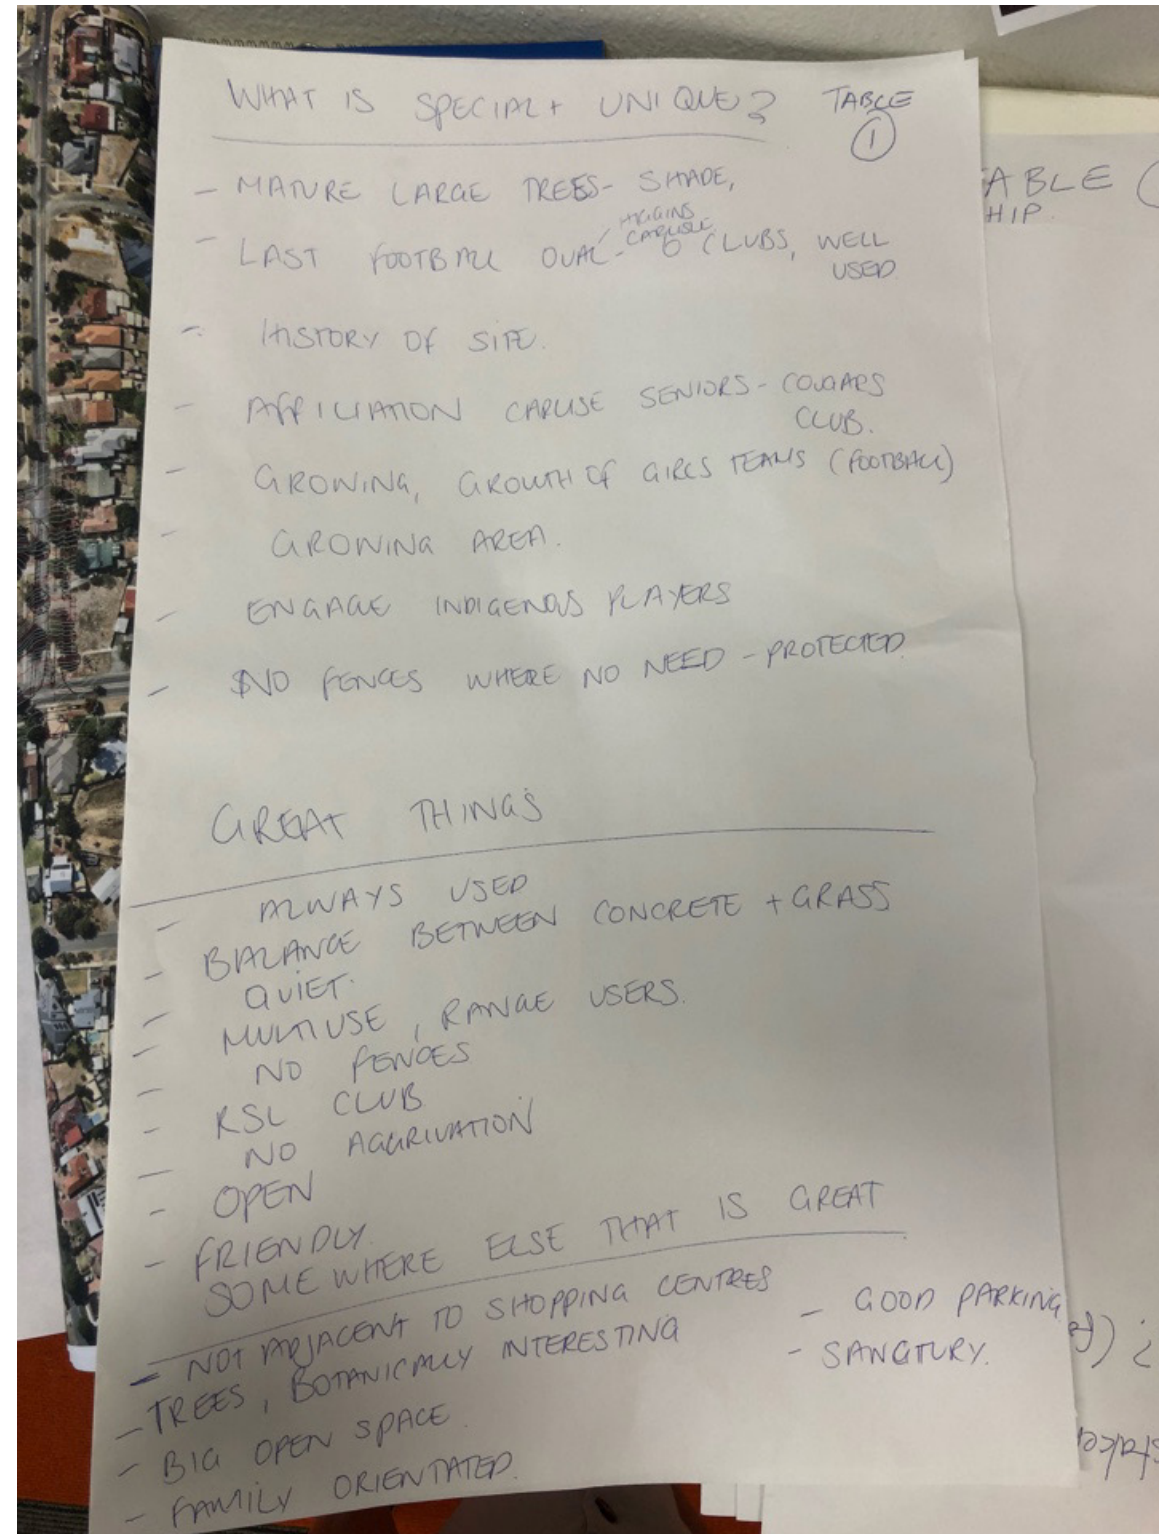 WHAT IS SPECIAL + UNIQUE? TABLE
1
- MATURE LARGE TREES - SHADE,
HIGGINS
CARLISLE
- LAST FOOTBALL OVAL - 6 CLUBS, WELL
USED.
- HISTORY OF SITE.
- AFFILIATION CARLISE SENIORS - COUGARS
CLUB.
- GROWING, GROWTH OF GIRLS TEAMS (FOOTBALL)
- GROWING AREA.
- ENGAGE INDIGENOUS PLAYERS
- NO FENCES WHERE NO NEED - PROTECTED.
GREAT THINGS
- ALWAYS USED
- BALANCE BETWEEN CONCRETE + GRASS
- QUIET.
- MULTIUSE, RANGE USERS.
- NO FENCES
- RSL CLUB
- NO AGGRIVATION
- OPEN
- FRIENDLY.
SOMEWHERE ELSE THAT IS GREAT
- NOT ADJACENT TO SHOPPING CENTRES
- TREES, BOTANICALLY INTERESTING
- BIG OPEN SPACE.
- FAMILY ORIENTATED.
- GOOD PARKING
- SANCTURY.
ABLE (
HIP.